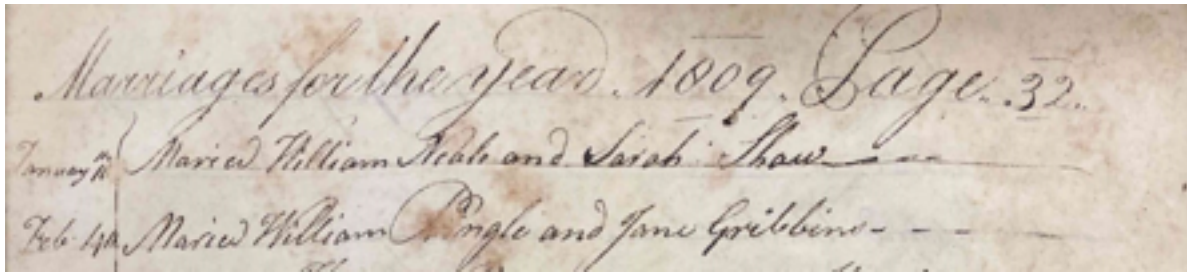 Marriages for the year. 1809. Page. 32.
January Maried William Neale and Sarah Shaw
Feb 14th Maried William Pringle and Jane Gribbins